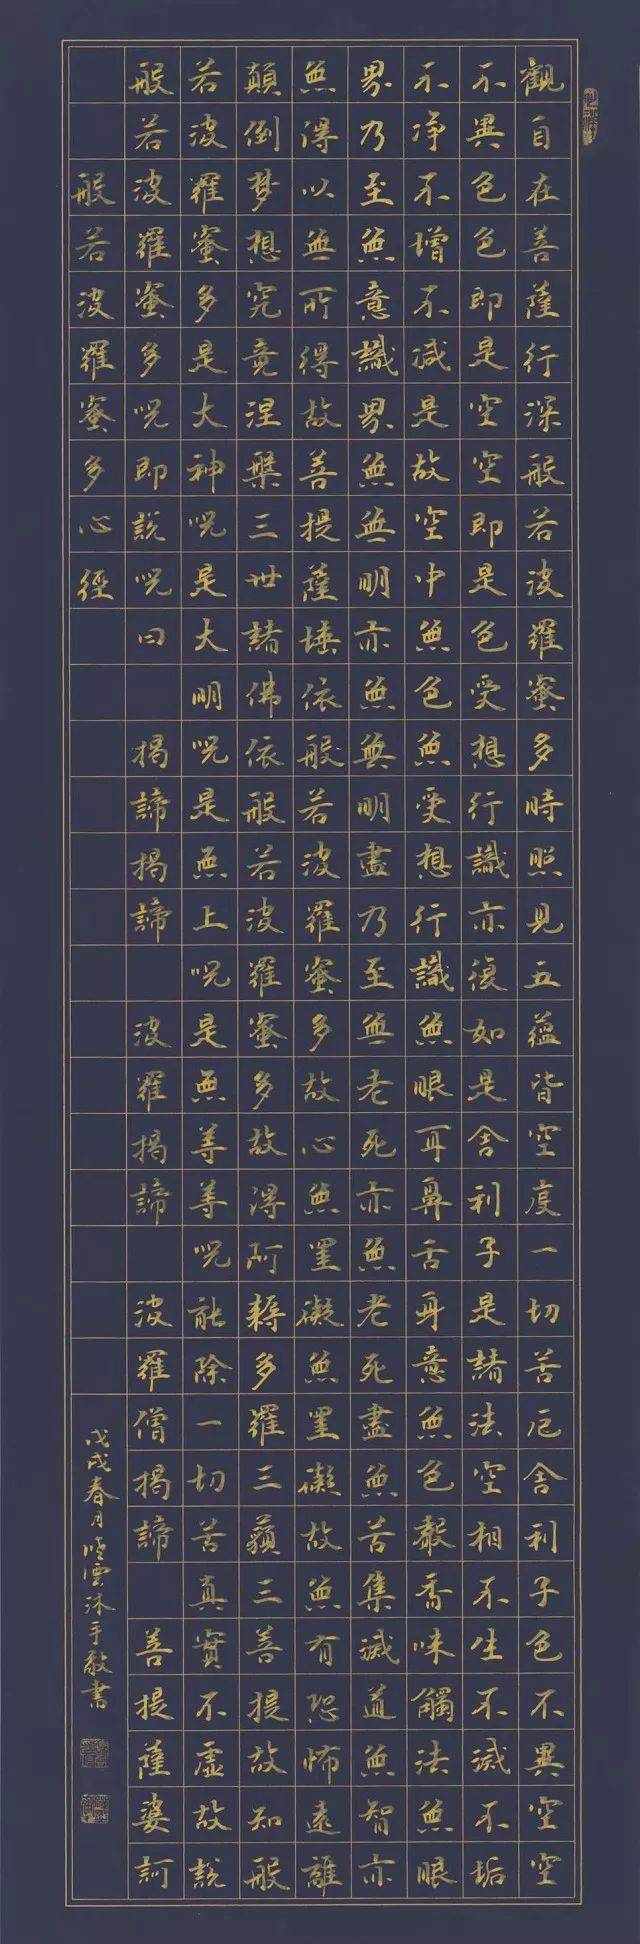 觀自在菩薩行深般若波羅蜜多時照見五蘊皆空度一切苦厄舍利子色不異空空
不異色色即是空空即是色受想行識亦復如是舍利子是諸法空相不生不滅不垢
不净不增不減是故空中無色無受想行識無眼耳鼻舌身意無色聲香味觸法無眼
界乃至無意識界無無明亦無無明盡乃至無老死亦無老死盡無苦集滅道無智亦
無得以無所得故菩提薩埵依般若波羅蜜多故心無罣礙無罣礙故無有恐怖遠離
顛倒梦想究竟涅槃三世諸佛依般若波羅蜜多故得阿耨多羅三藐三菩提故知般
若波羅蜜多是大神呪是大明呪是無上呪是無等等呪能除一切苦真實不虛故說
般若波羅蜜多呪即說呪曰 揭諦揭諦 波羅揭諦 波羅僧揭諦 菩提薩婆訶
般若波羅蜜多心經
戊戌春月曉雲沐手敬書